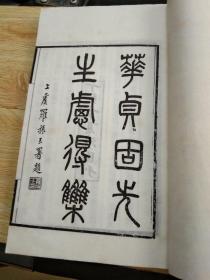 華貞固先
生慮得集
上虞羅振玉署題